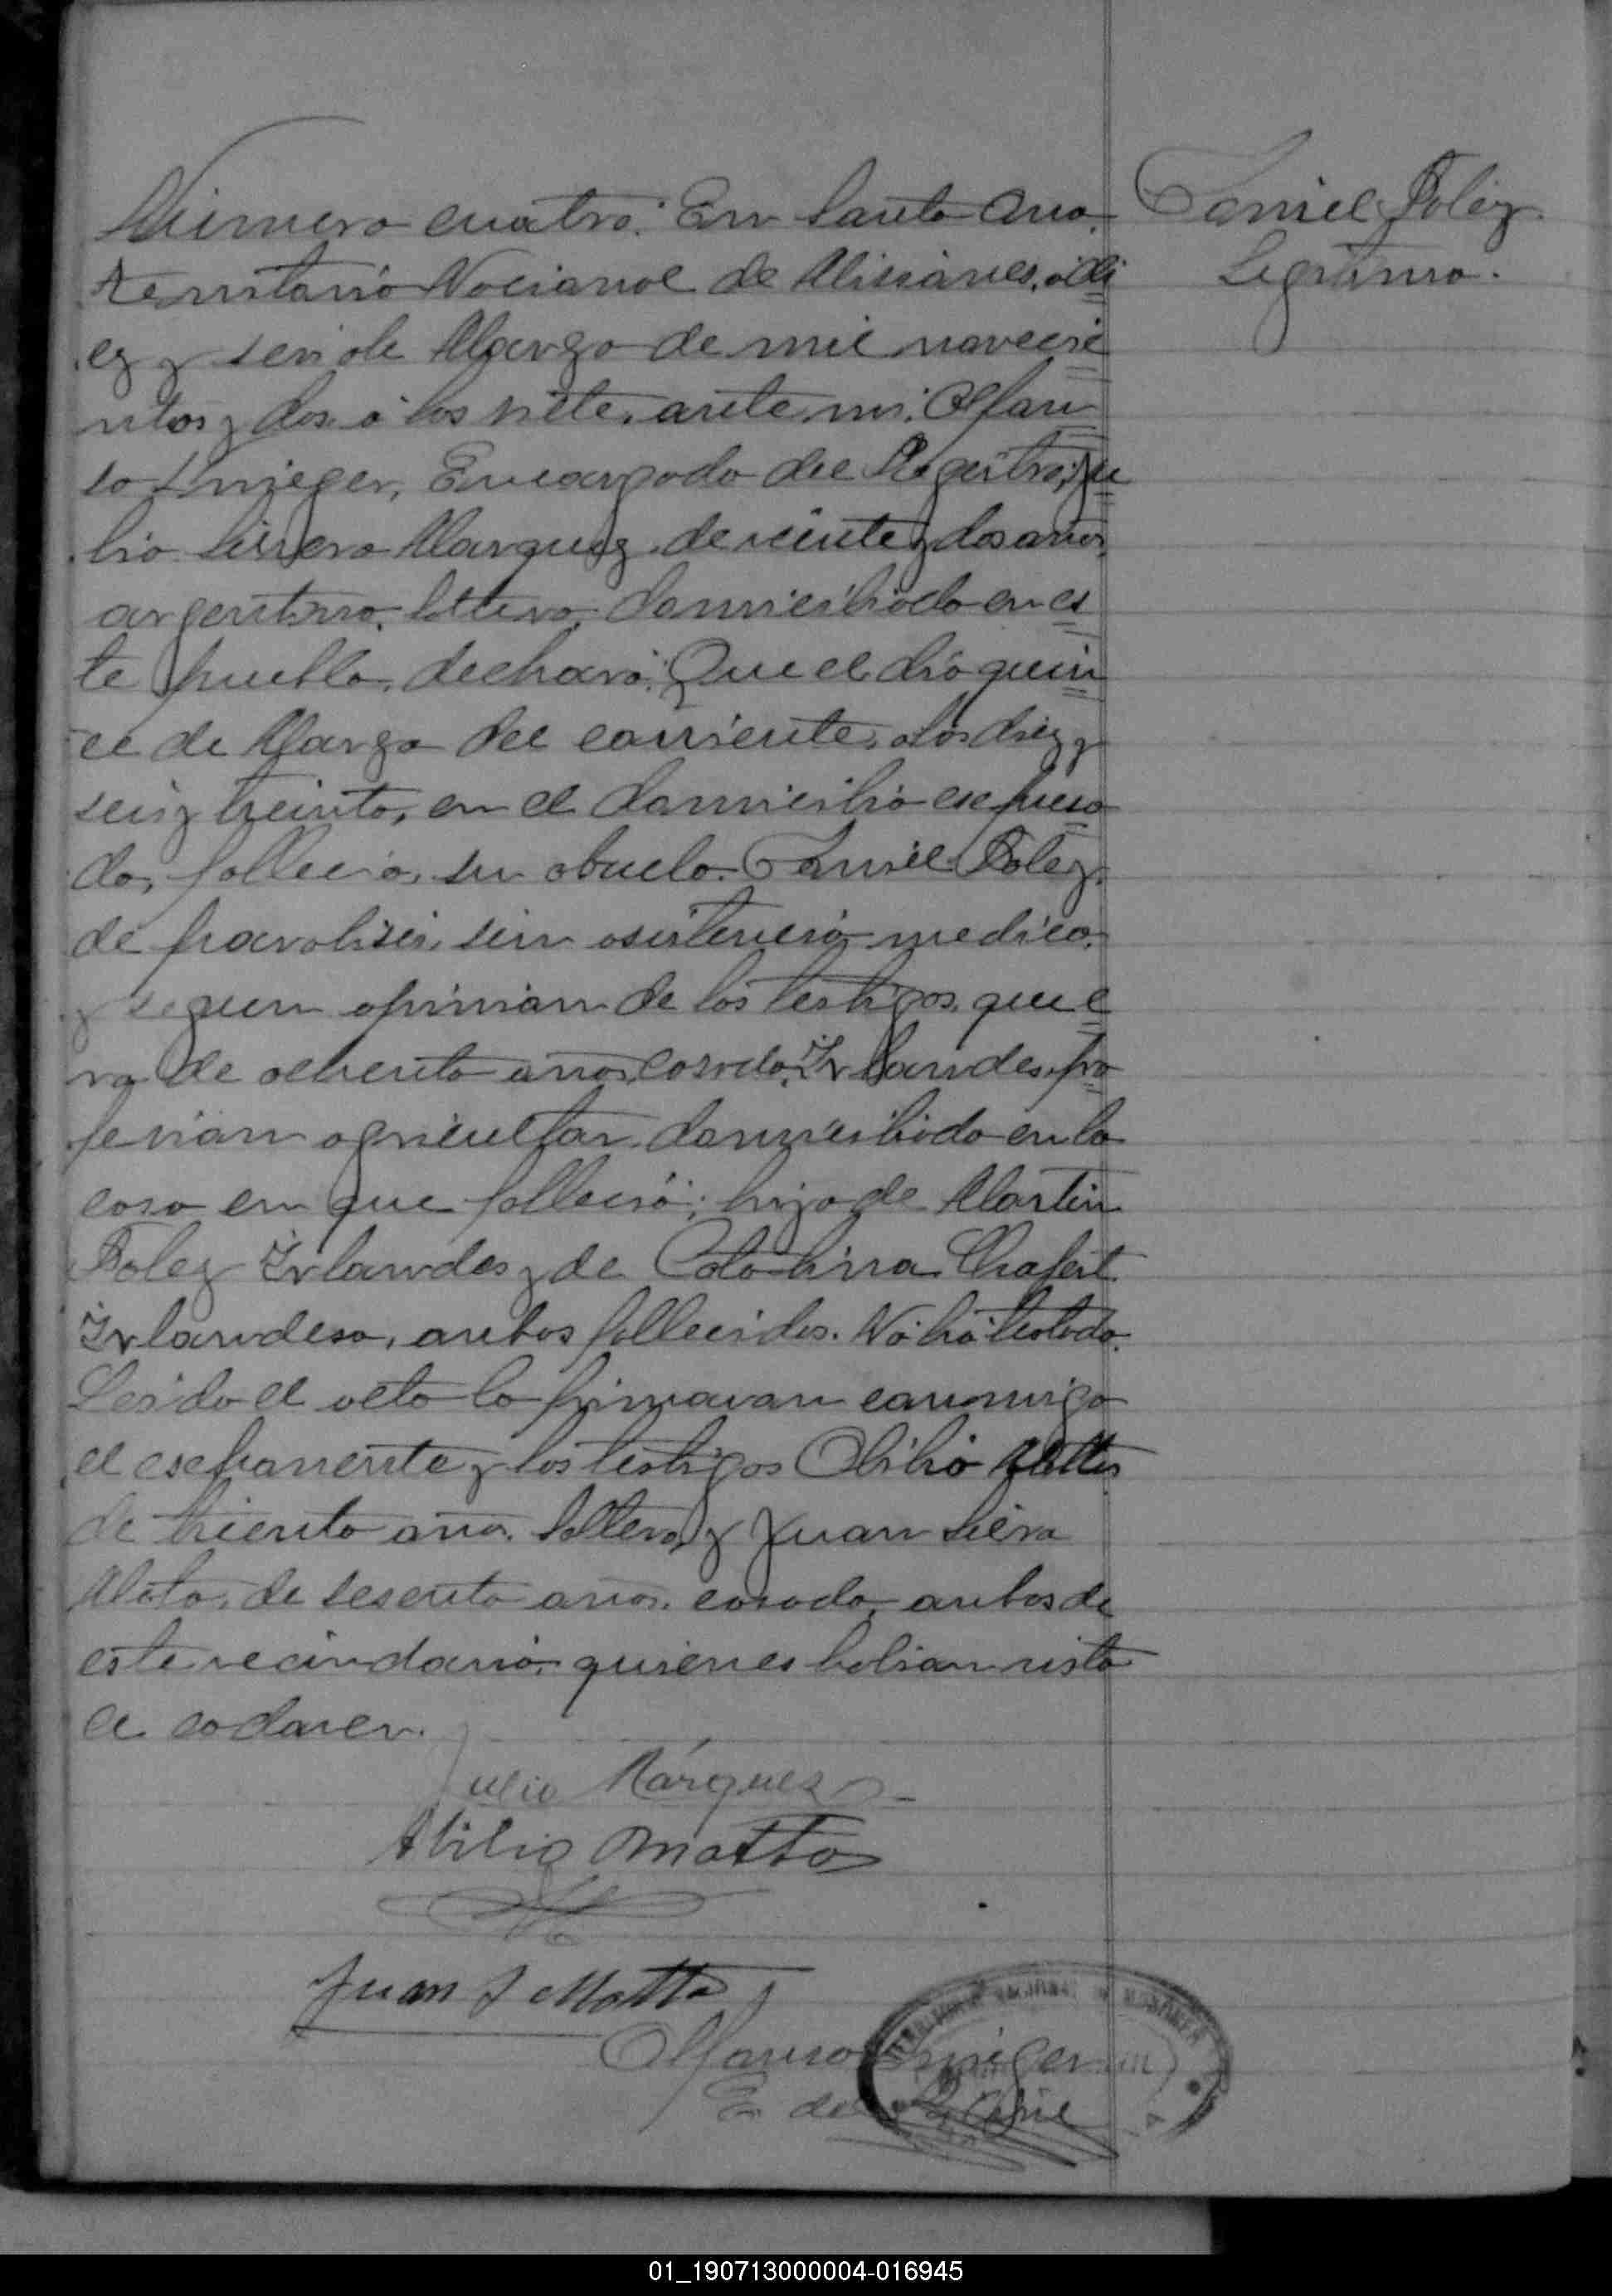 Número cuatro: En Santa Ana,
Territorio Nacional de Misiones, á di
ez y seis de Marzo de mil novecie
ntos y dos á las siete, ante mi: Alfon
so Encargado del Registro; Ju
lio Marquez, de veinte y dos años,
argentino, soltero, domiciliado en es
te pueblo, declaró: Que el dia quin
ce de Marzo del corriente, a las diez y
seis y treinta, en el domicilio espresa
do, falleció, su abuelo Daniel Foley,
de paralisis, sin asistencia medica,
y segun opinion de los testigos, que e
ra de ochenta años, casado, Irlandes, pro
fesion agricultor, domiciliado en la
casa en que falleció; hijo de Martin
Foley Irlandes y de Catalina
Irlandesa, ambos fallecidos. No há testado.
Leido el acta la firmaron conmigo
el esponente y los testigos Abilio Matto
de trienta años, soltero, y Juan Silva
Mato, de sesenta años, casado, ambos de
este vecindario, quienes habian visto
el cadaver.
Julio Márquez
Abilio Matto
Juan S Motta
Alfonso
E. del R. Civil
Daniel Foley
Legitimo.
TERRITORIO NACIONAL DE MISIONES
01_190713000004-016945